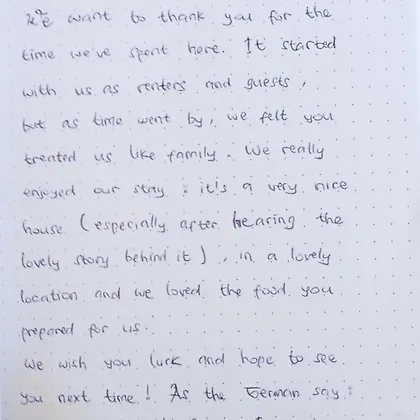 We want to thank you for the
time we've spent here. It started
with us as renters and guests,
but as time went by, we felt you
treated us like family. We really
enjoyed our stay: it's a very nice
house (especially after hearing the
lovely story behind it), in a lovely
location and we loved the food you
prepared for us.
We wish you luck and hope to see
you next time! As the German say: